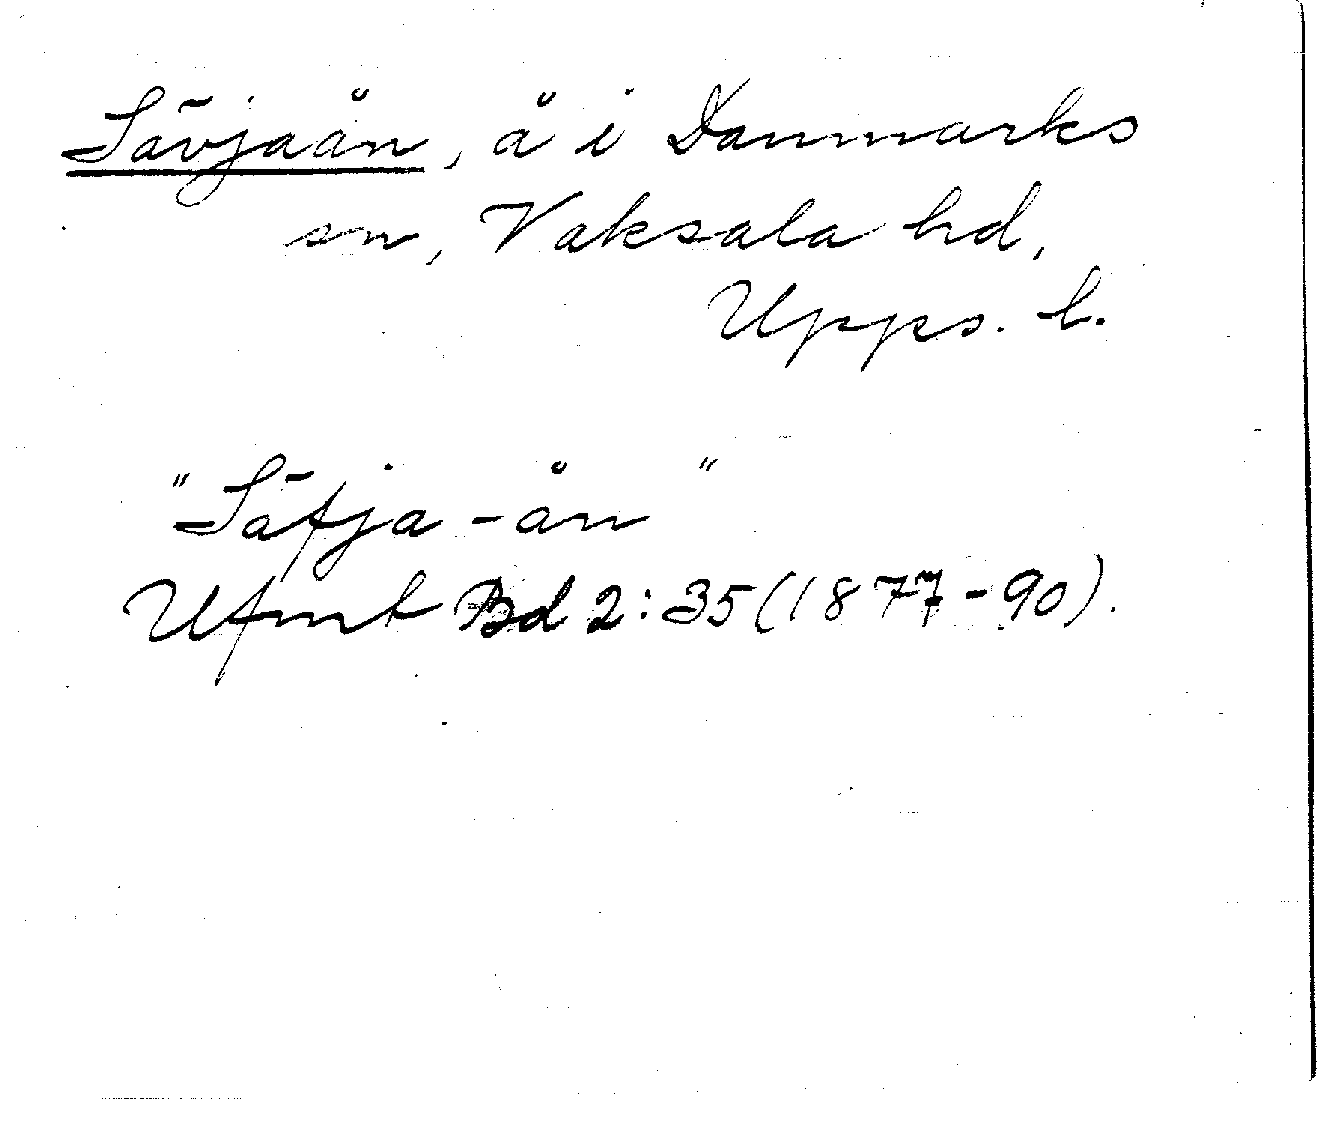 Sävjaån, å i Danmarks
sn, Vaksala hd,
Upps. l.
"Säfja-ån"
Ufmt Bd 2:35 (1877-90).